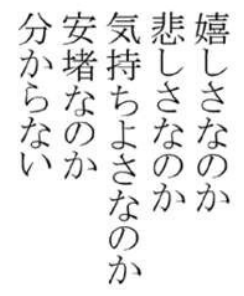 嬉しさなのか
悲しさなのか
気持ちよさなのか
安堵なのか
分からない